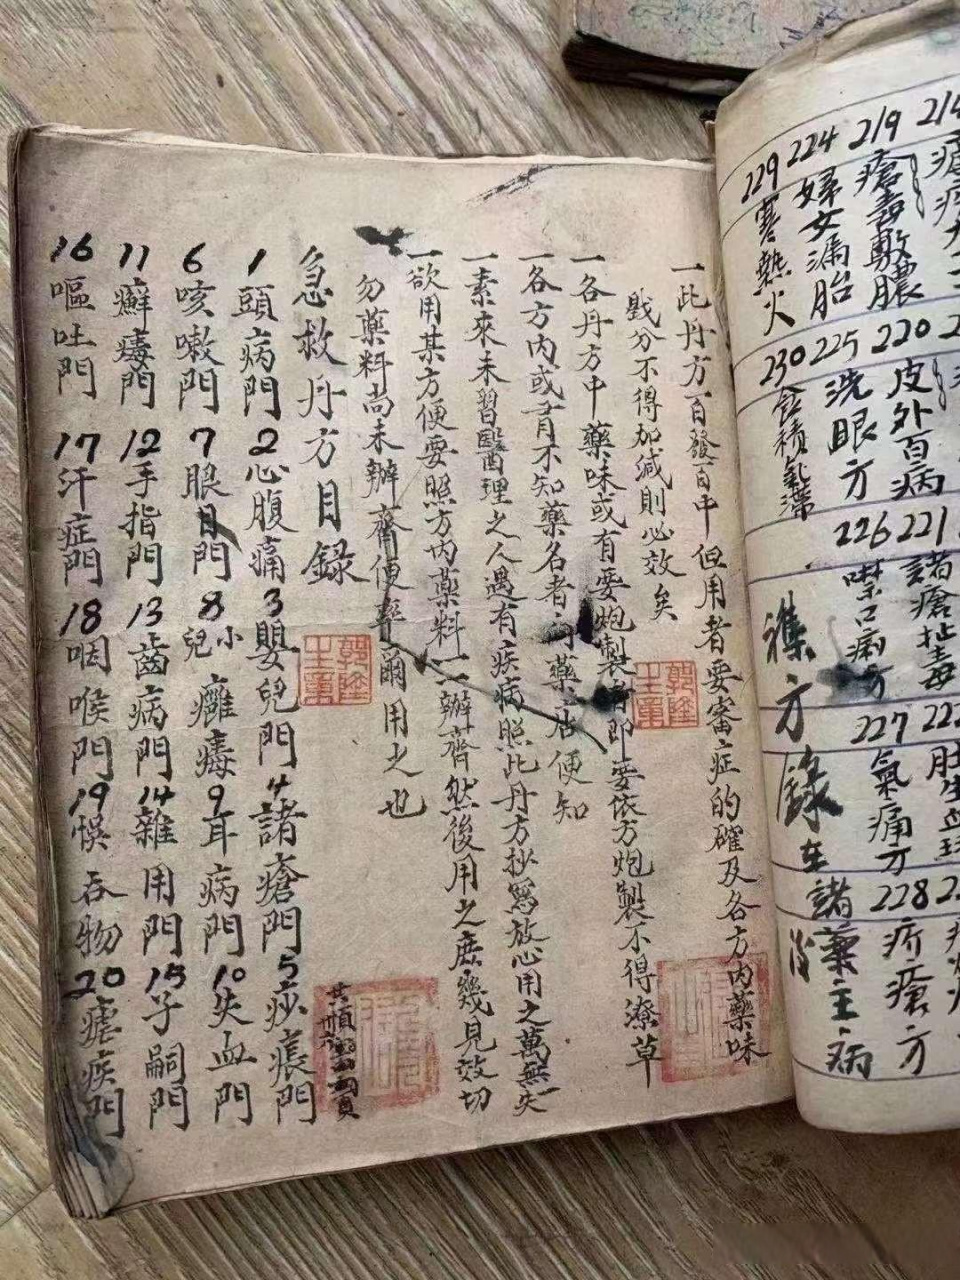 229 224 219 214
寒熱火 婦女漏胎 瘡毒敷膿
230 225 220
食積氣滯 洗眼方 皮外百病
226 221
噤口痢方 諸瘡扯毒
雜方錄在諸藥主病後
227 222
氣痛方
228
疥瘡方
一此丹方百發百中但用者要審症的確及各方内藥味
戥分不得加減則必效矣
一各丹方中藥味或有要炮製者即要依方炮製不得潦草
一各方内或有不知藥名者问藥店便知
一素來未習醫理之人遇有疾病照此丹方抄寫放心用之萬無一失
一欲用某方便要照方内藥料一一辦齊然後用之庶幾見效切
勿藥料尚未辦齊便率爾用之也
郭隆
之章
郭隆
之章
急救丹方目錄
共頂
1頭病門 2心腹痛 3嬰兒門 4諸瘡門 5痧脹門
6咳嗽門 7眼目門 8小兒癱痿 9耳病門 10失血門
11癬痿門 12手指門 13齒病門 14雜用門 15子嗣門
16嘔吐門 17汗症門 18咽喉門 19悞吞物 20瘧疾門